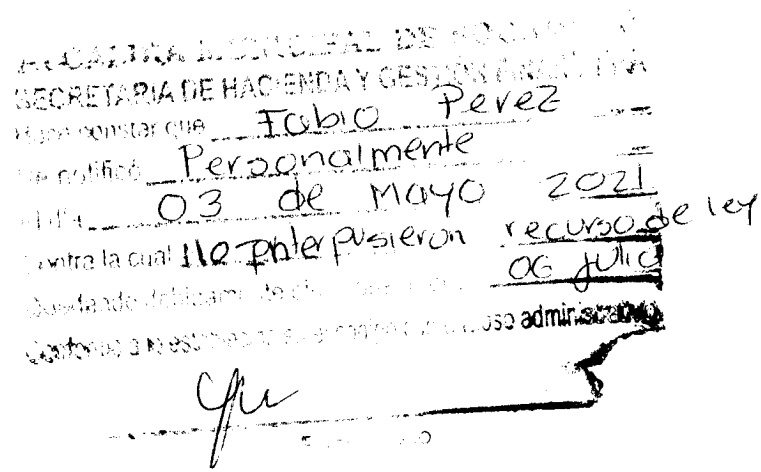 MUNICIPAL DE
SECRETARIA DE HACIENDA Y GESTION
Hace constar que Fabio Perez
Se notificó Personalmente
El día 03 de Mayo 2021
Contra la cual no interpusieron recurso de ley
Quedando debidamente 06 Julio
Conforme a lo administrativo